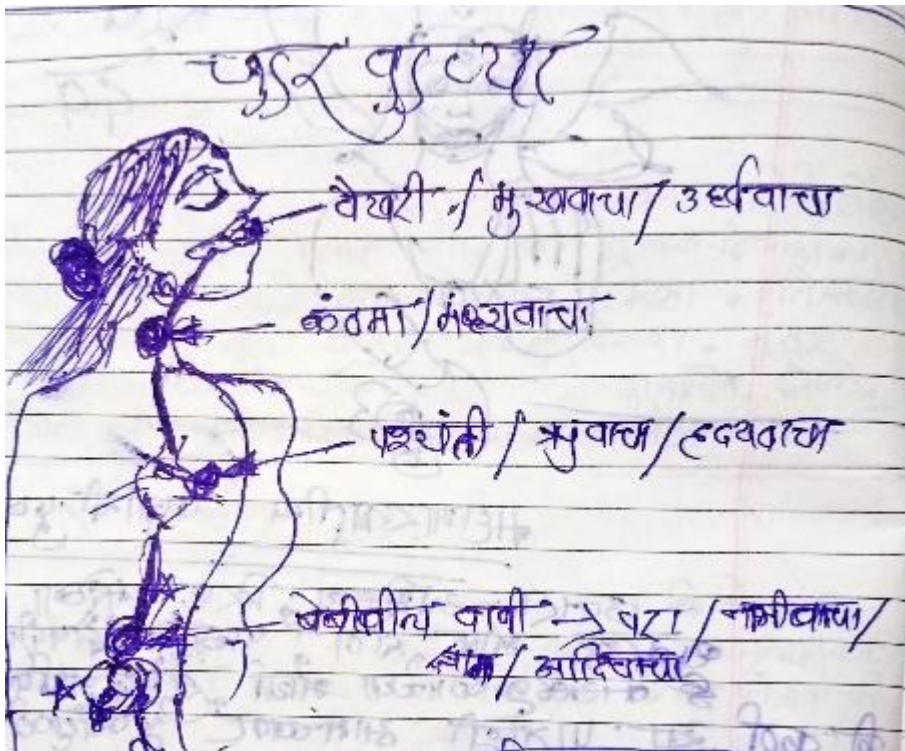 चार वाण्या
वैखरी / मुखवाचा / उर्ध्ववाचा
कंठमा / मध्यवाचा
पश्यंती / ऋजुवाचा / हृदयवाचा
बेंबीतील वाणी → परा / नाभीवाचा /
आदिवाचा